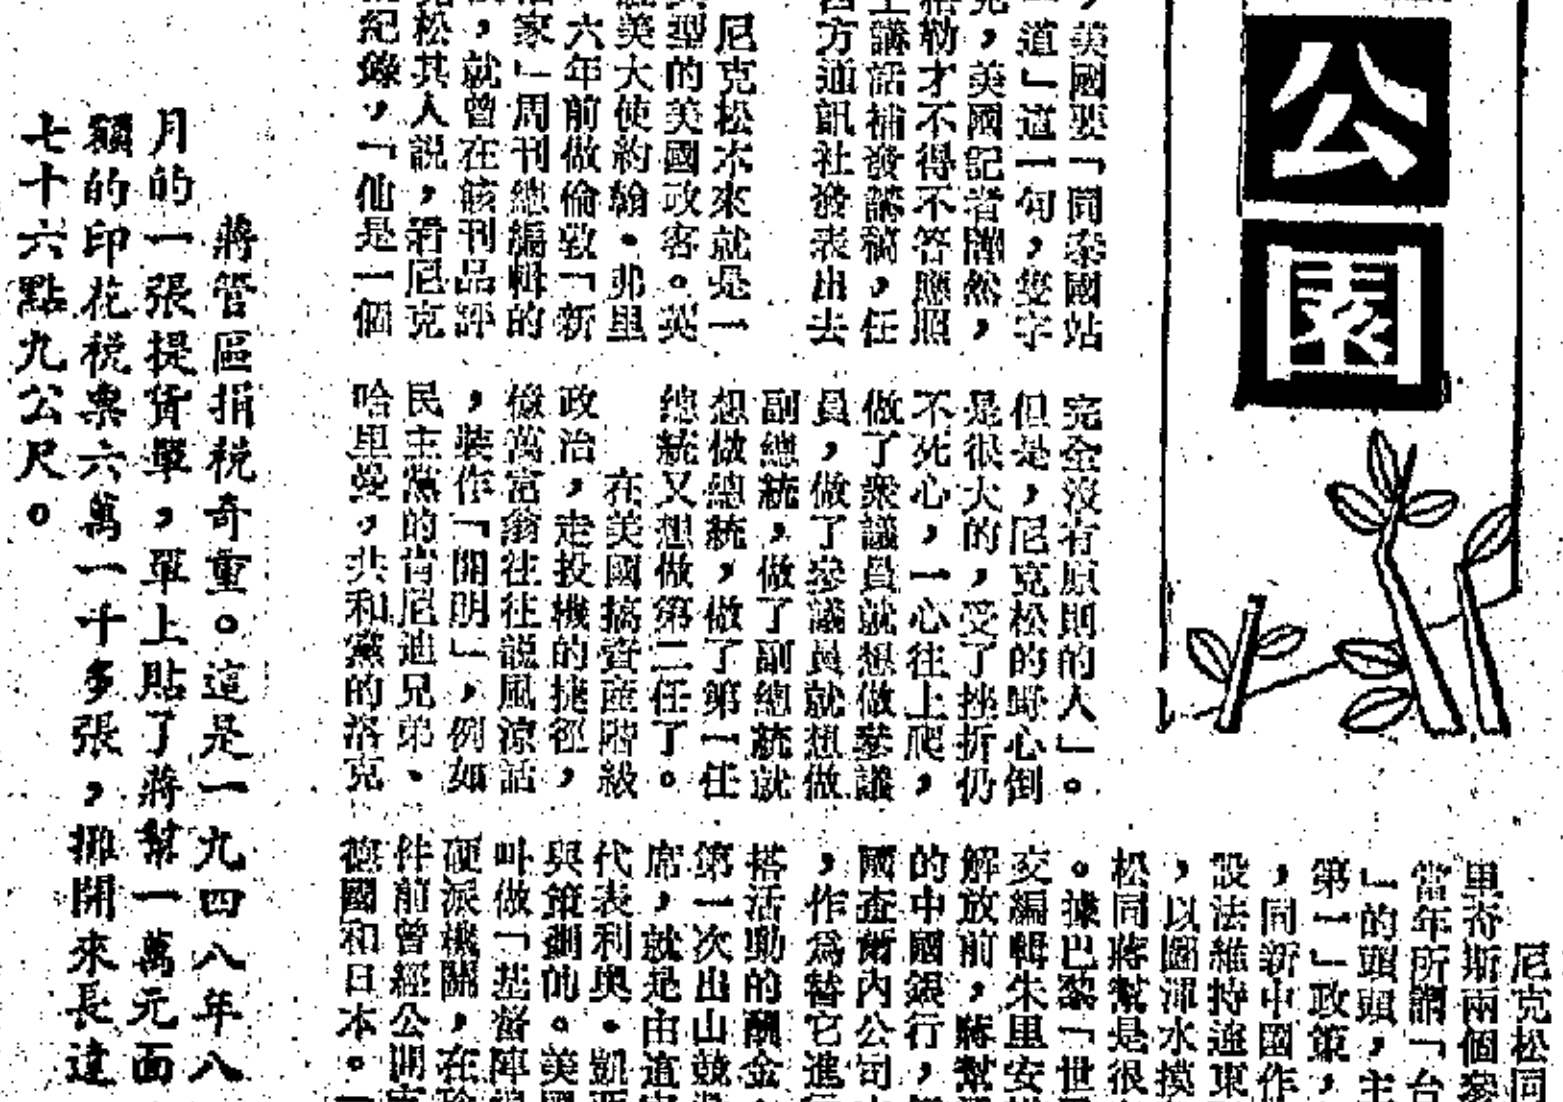 公園
，美國要「同泰國站
一道」這一句，隻字
，美國記者嘩然，
格勒才不得不答應照
上講話補發講稿，任
西方通訊社發表出去
尼克松本來就是一
型的美國政客。英
美大使約翰·弗里
六年前做倫敦「新
家」周刊總編輯的
，就曾在該刊品評
克松其人說，看尼克
紀錄，「他是一個
完全沒有原則的人」。
但是，尼克松的野心倒
是很大的，受了挫折仍
不死心，一心往上爬，
做了衆議員就想做參議
員，做了參議員就想做
副總統，做了副總統就
想做總統，做了第一任
總統又想做第二任了。
在美國搞資產階級
政治，走投機的捷徑，
億萬富翁往往說風涼話
，裝作「開明」，例如
民主黨的肯尼迪兄弟、
哈里曼，共和黨的洛克
尼克松同
里奇斯兩個參
當年所謂「台
」的頭頭，主
第一」政策，
，同新中國作
設法維持遠東
，以圖渾水摸
松同蔣幫是很
。據巴黎「世
交編輯朱里安
解放前，蔣幫
的中國銀行，
國查爾內公司
，作爲替它進
搭活動的酬金
第一次出山競
席，就是由這
代表利奧·凱
與策劃的。美
叫做「基督陣
硬派機關，在
件前曾經公開
德國和日本。
蔣管區捐税奇重。這是一九四八年八
月的一張提貨單，單上貼了蔣幫一萬元面
額的印花税票六萬一千多張，攤開來長達
七十六點九公尺。